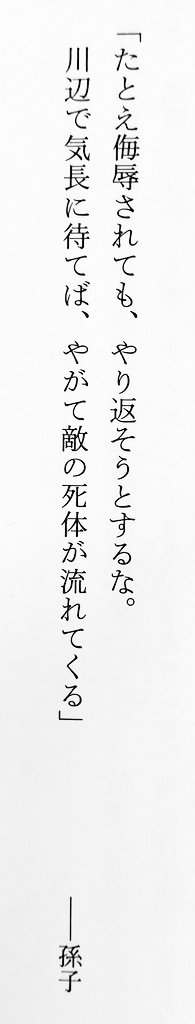 「たとえ侮辱されても、やり返そうとするな。
川辺で気長に待てば、やがて敵の死体が流れてくる」
――孫子